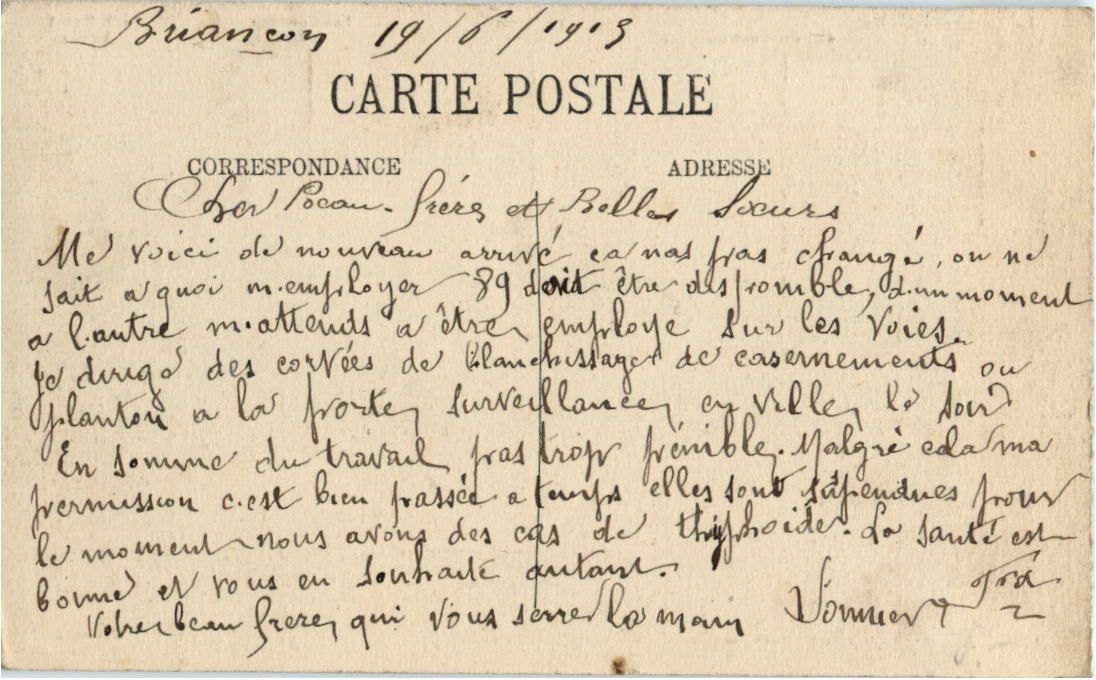 Briançon 19/6/1913
CARTE POSTALE
CORRESPONDANCE ADRESSE
Cher Beau-frère et Belles Sœurs
Me voici de nouveau arrivé ça nas pas changé, on ne
sait a quoi m'employer 89 doit être disponible, d'un moment
a l'autre m'attends a être employe sur les voies.
Je dirige des corvées de blanchissage de casernements ou
planton a la porte, surveillance en ville, le soir
En somme du travail pas trop pénible. Malgré cela ma
permission c'est bien passée a temps elles sont suspendues pour
le moment nous avons des cas de thyphoide. La santé est
bonne et vous en souhaite autant.
Votre beau frere, qui vous serre la main